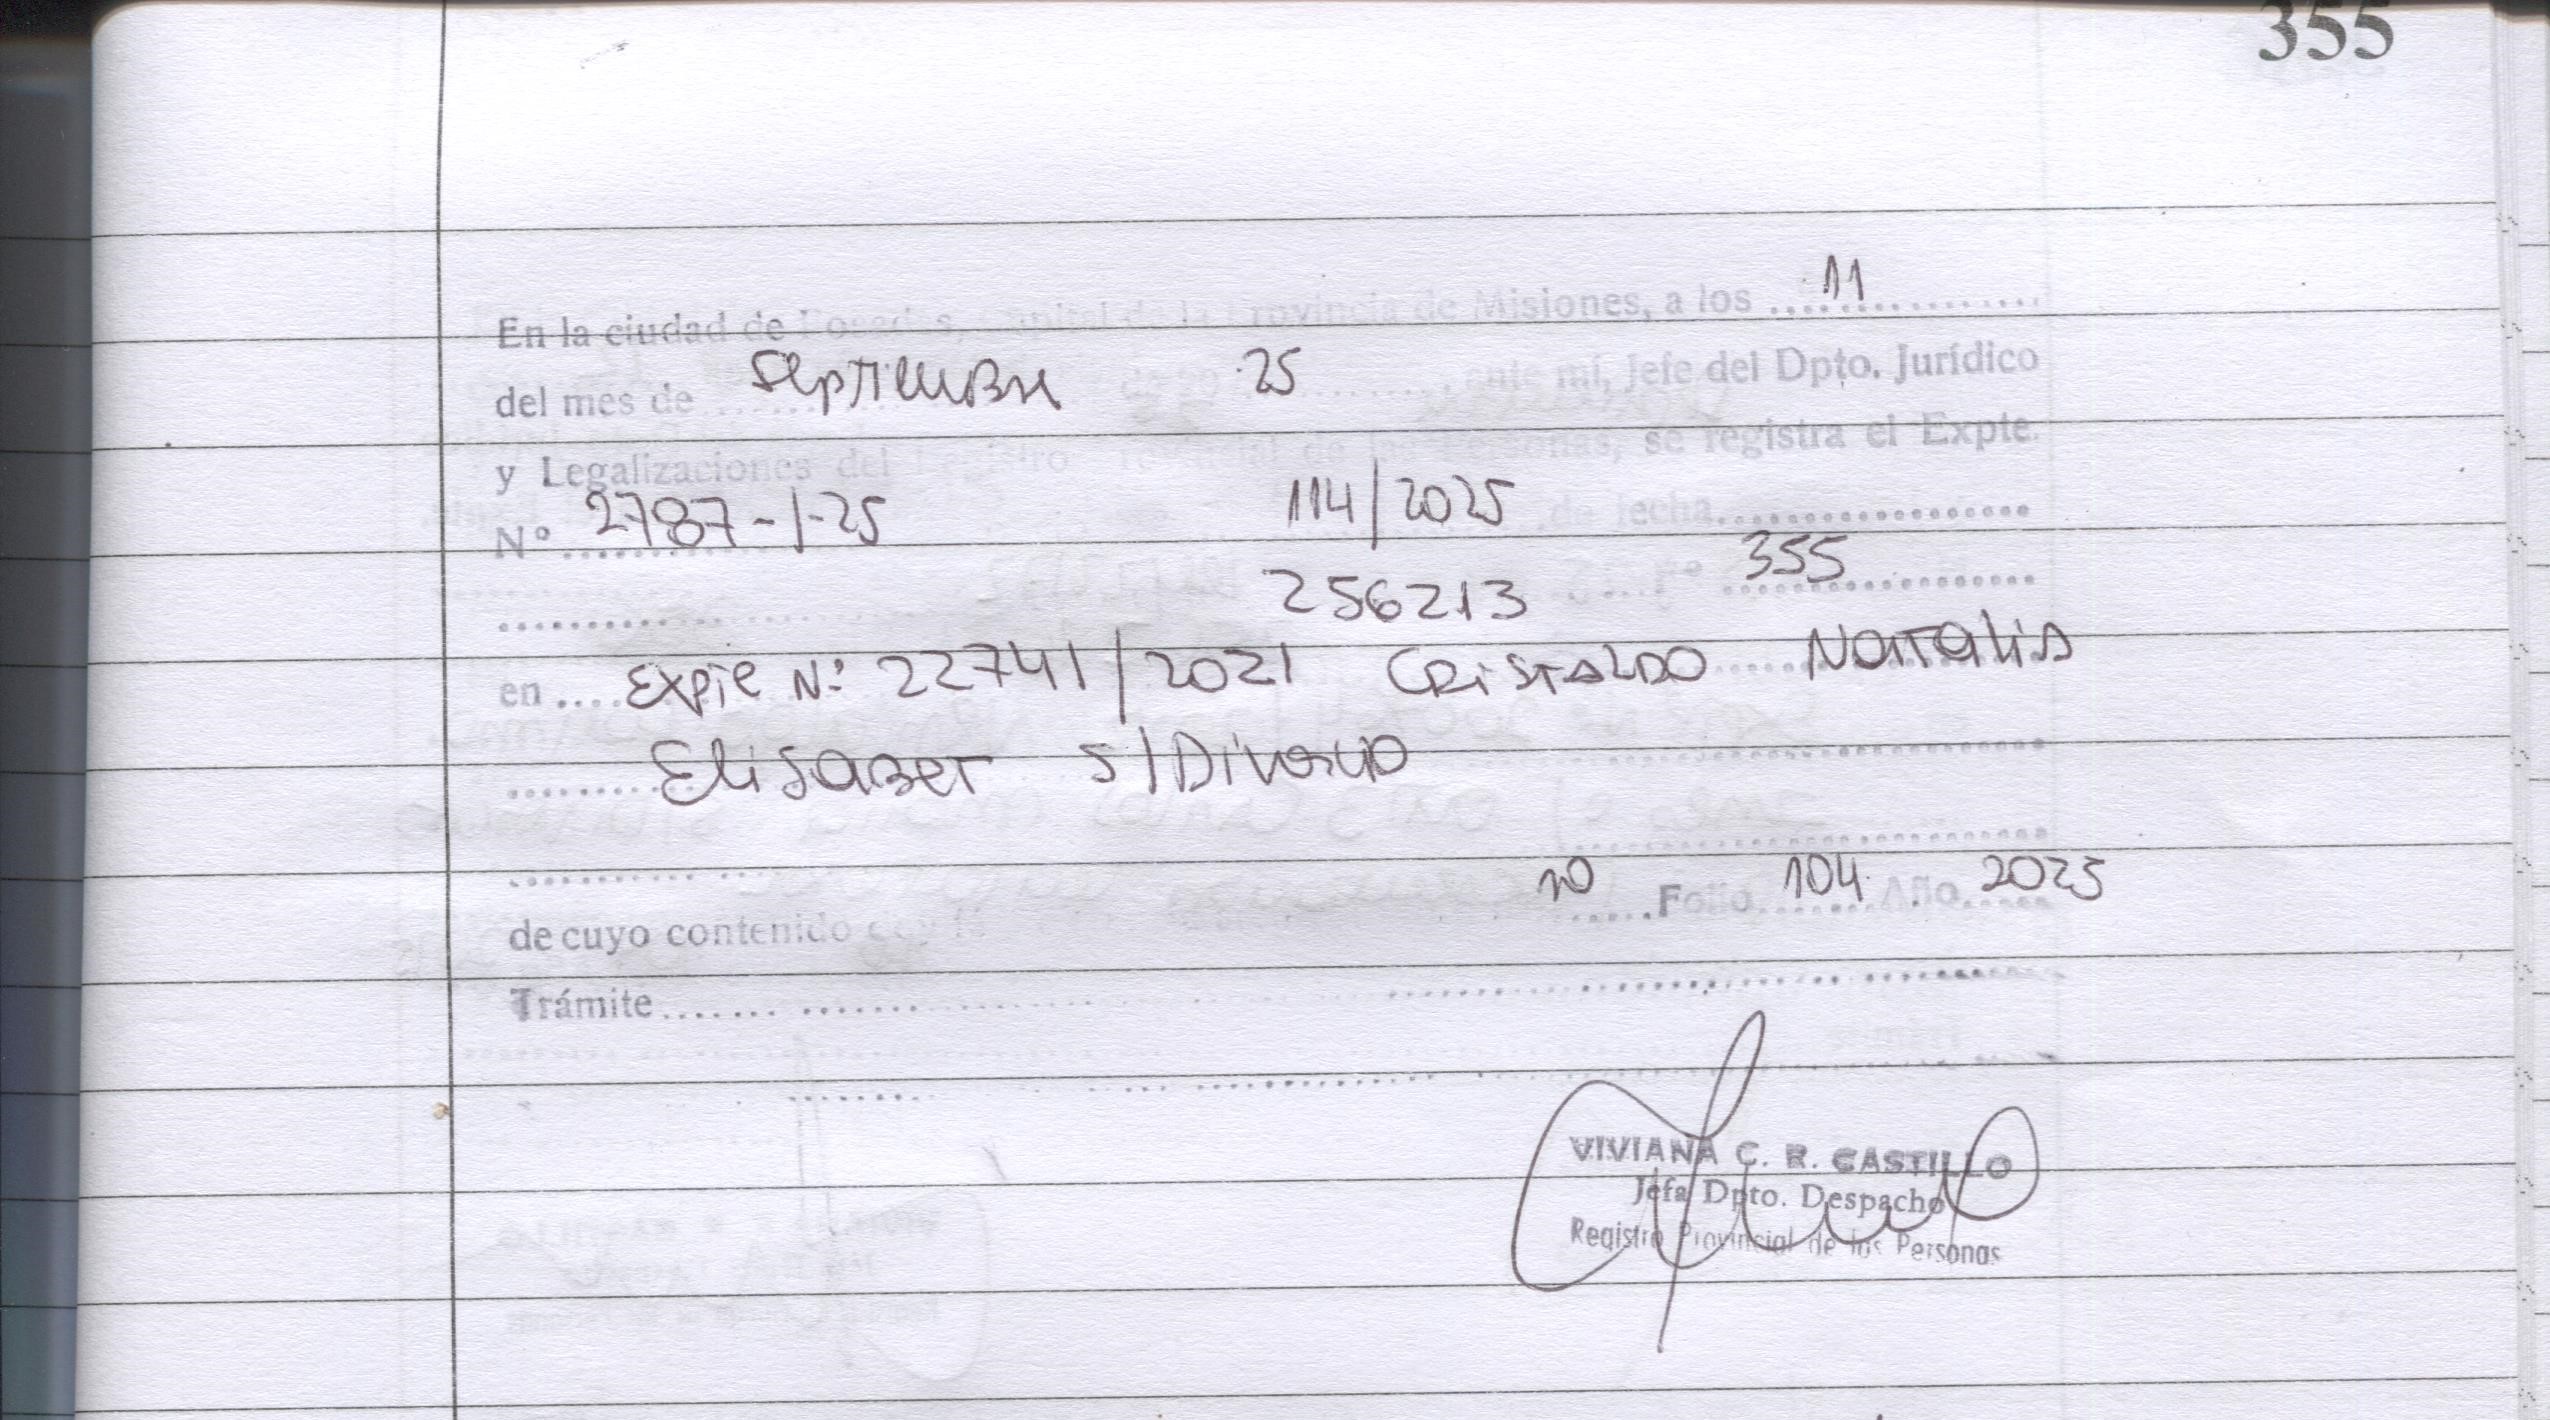 355
En la ciudad de Posadas, Capital de la Provincia de Misiones, a los 11
del mes de Septiembre de 25, ante mí, Jefe del Dpto. Jurídico
y Legalizaciones del Registro Provincial de las Personas, se registra el Expte.
Nº 2787-1-25 114/2025 de fecha
256213 Fº 355
en Expte Nº: 22741/2021 CRISTALDO Natalia
Elisabet S/Divorcio
de cuyo contenido doy fe Folio 104 Año 2025
Trámite
VIVIANA C. R. CASTILLO
Jefa Dpto. Despacho
Registro Provincial de las Personas